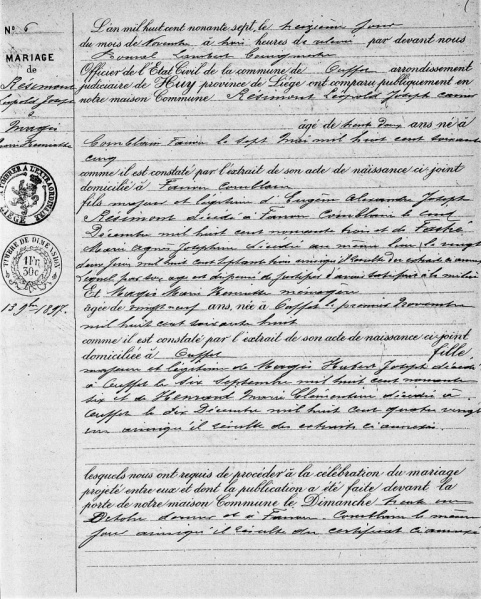 N° 6
MARIAGE
de
Résimont
Léopold Joseph
&
Magis
Marie Henriette
TIMBRE DE DIMENSION
1 Fr.
30c
13 9bre 1897.
L'an mil huit cent nonante sept, le treizième jour
du mois de Novembre à trois heures de relevée par devant nous
Officier de l'État Civil de la commune de Ouffet arrondissement
judiciaire de Huy province de Liège ont comparu publiquement en
notre maison Commune Résimont Léopold Joseph
âgé de trente deux ans né à
Comblain Fairon le sept Mai mil huit cent soixante
cinq
comme il est constaté par l'extrait de son acte de naissance ci-joint
domicilié à Fairon Comblain
fils majeur et légitime d'Eugène Alexandre Joseph
Résimont décédé à Fairon Comblain le
Décembre mil huit cent nonante trois et de
Marie Agnès Joséphine décédée au même lieu le vingt
Juin mil huit cent septante trois ainsi qu'il résulte des extraits ci annexés
Et Magis Marie Henriette ménagère
âgée de vingt neuf ans, née à Ouffet le premier Novembre
mil huit cent soixante huit
comme il est constaté par l'extrait de son acte de naissance ci-joint
domiciliée à Ouffet fille
majeure et légitime de Magis Hubert Joseph décédé
à Ouffet le six Septembre mil huit cent nonante
six et de Hennont Marie Clémentine décédée à
Ouffet le dix Décembre mil huit cent quatre vingt
un ainsi qu'il résulte des extraits ci annexés.
lesquels nous ont requis de procéder à la célébration du mariage
projeté entre eux et dont la publication a été faite devant la
porte de notre maison Commune le Dimanche trente un
Octobre dernier et à Fairon Comblain le même
jour ainsi qu'il résulte du certificat ci annexé